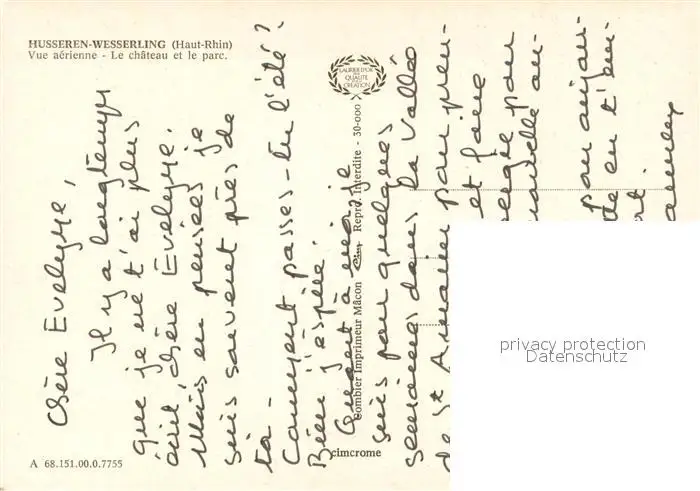 HUSSEREN-WESSERLING (Haut-Rhin)
Vue aérienne - Le château et le parc.
LAURIER D'OR
QUALITÉ
CRÉATION
Combier Imprimeur Mâcon Cim Repro. Interdite - 30-000
cimcrome
A 68.151.00.0.7755
Chère Evelyne,
Il y a longtemps
que je ne t'ai plus
écrit, chère Evelyne.
Mais en pensées je
suis souvent près de
toi -
Comment passes-tu l'été ?
Bien j'espère.
Quant à moi je
suis pour quelques
semaines dans la Vallée
de St Amarin pour pren-
et faire
pour
an-
pour aujour-
te en t'em-
rt.
privacy protection
Datenschutz